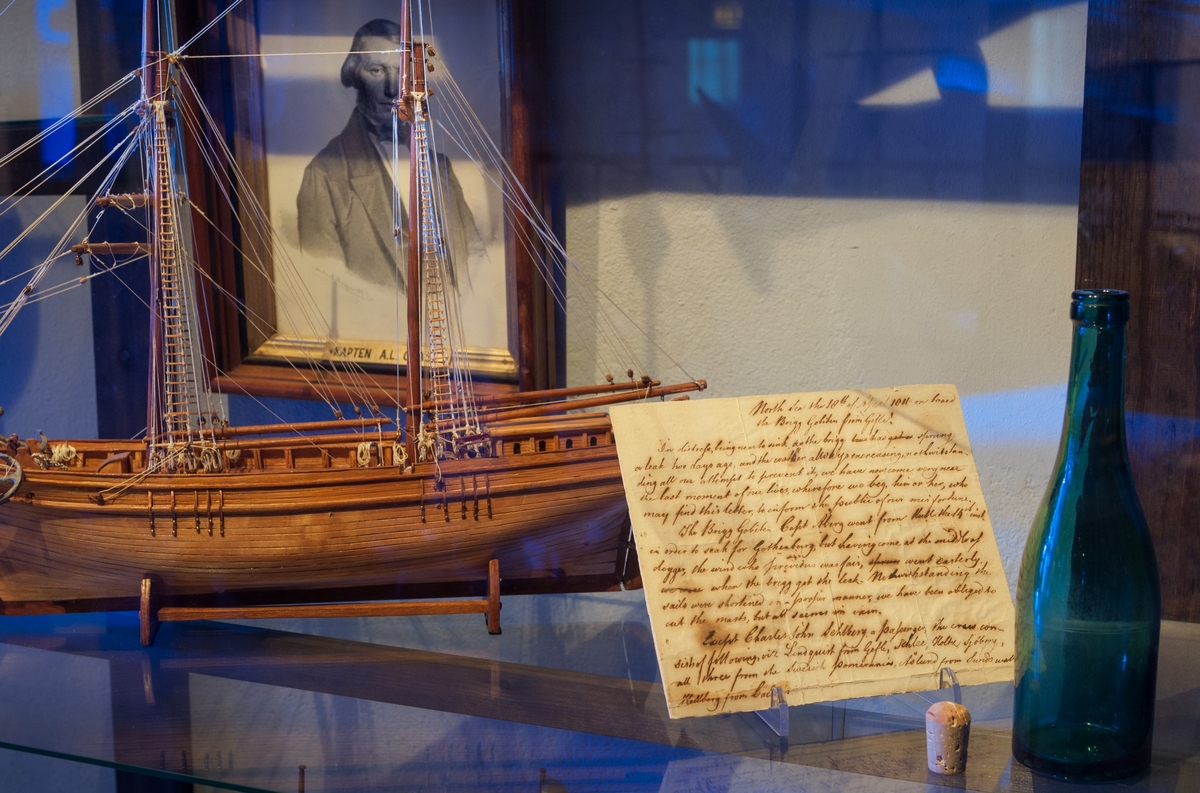 KAPTEN A.L.
North Sea the 18th of 1811 on board
the Brigg Gefle!
In distress, being near to sink as the brigg has got a spring
a leak two days ago, and the water allways encreasing, nothwithstan
ding all our attempts to prevent it, we have now come very near
the last moment of our lives, wherefore we beg, him or her, who
may find this letter, to inform the public of our misfortune.
The Brigg Capt. went from the
in order to seak for Gothenburg, but having come at the middle of
dogger, the wind who was fair, went easterly
when the brigg got the leak. Nothwithstanding the
sails were shortened in a manner, we have been obliged to
cut the masts, but all seems in vain.
Except Charles John Sohlberg a passinger, the crew con-
sist of following, viz Lindquist from Gefle, Holtz, Sjöberg,
all three from the Swedish Pomerania, Åslund from Sundswall
Hellberg from